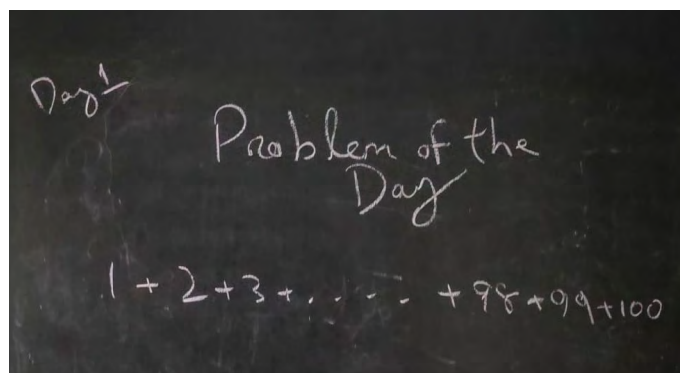 Day 1
Problem of the
Day
1 + 2 + 3 + ..... + 98 + 99 + 100